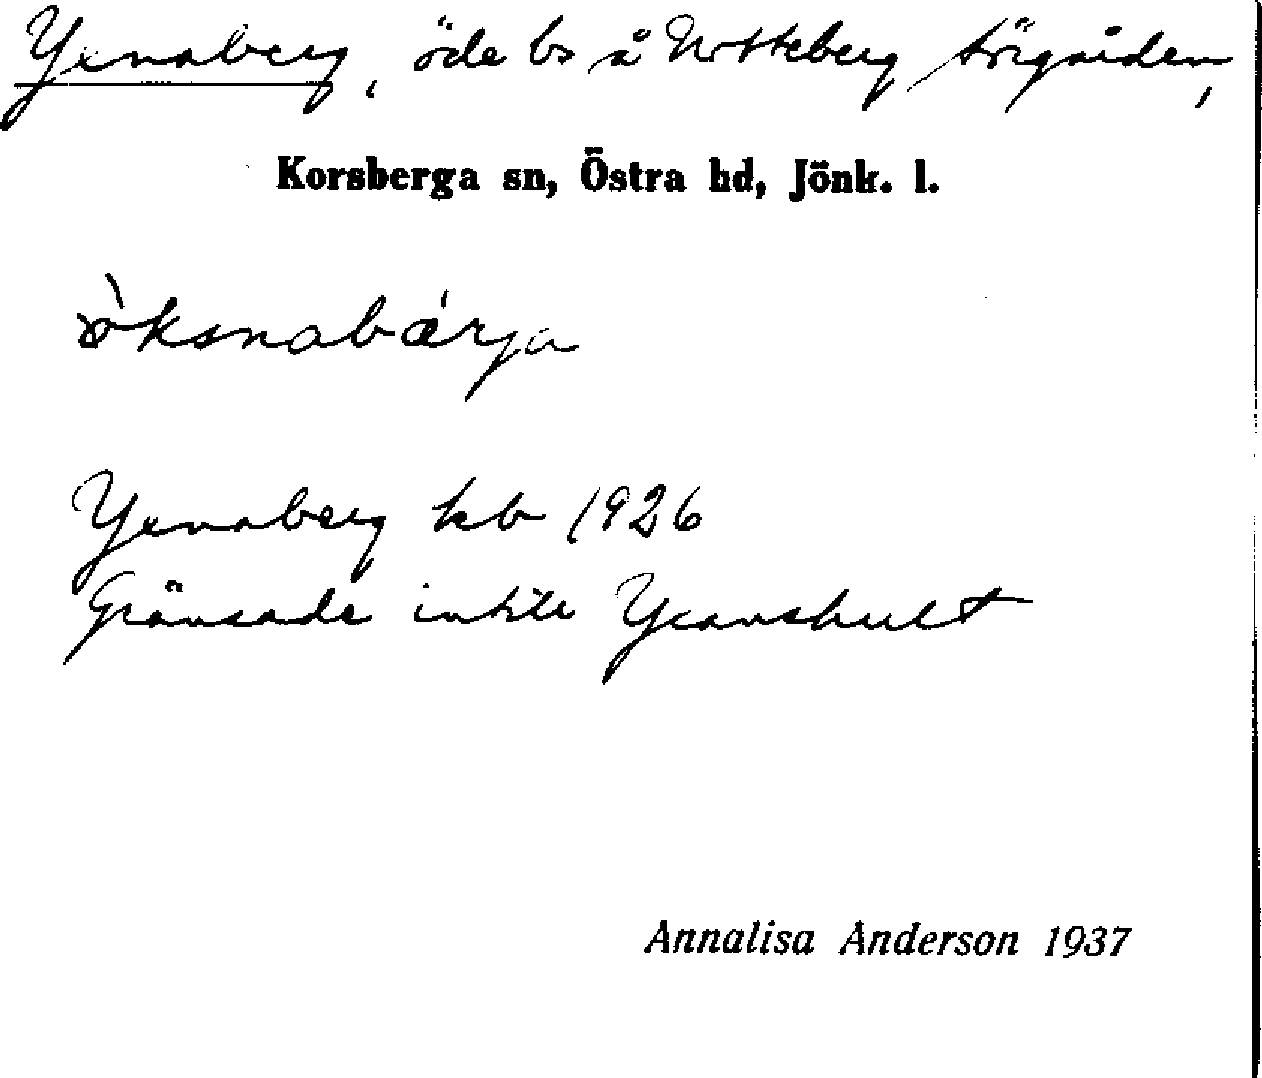 Yxnaberg, öde bs å Notteberg Sörgården,
Korsberga sn, Östra hd, Jönk. l.
ö̀ksnabǽrja
Yxnaberg kb 1926
Gränsade intill
Annalisa Anderson 1937